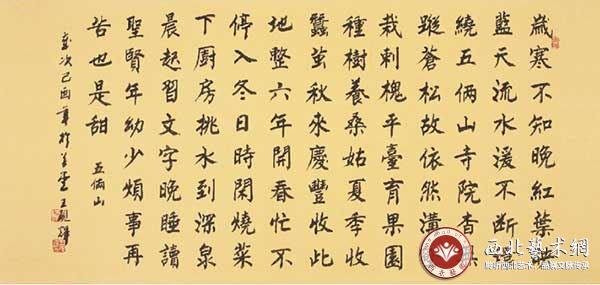 歲寒不知晚紅葉
藍天流水湲不斷
繞五俩山寺院杳
蹤蒼松故依然
栽刺槐平臺育果園
種樹養桑姑夏季收
蠶茧秋來慶豐收此
地整六年開春忙不
停入冬日時閑燒菜
下厨房挑水到深泉
晨起習文字晚睡讀
聖賢年幼少煩事再
苦也是甜 五俩山
歲次己酉年於 王
西北藝術網